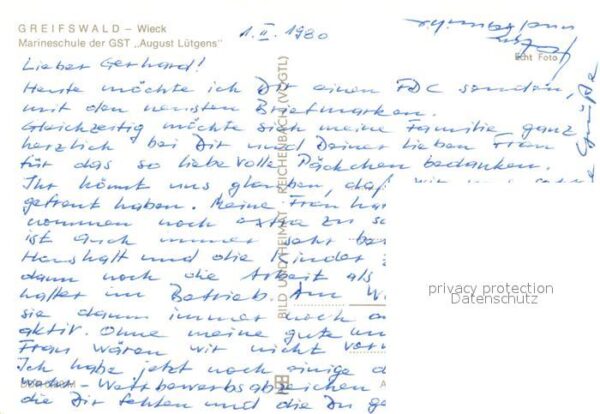 GREIFSWALD – Wieck
Marineschule der GST „August Lütgens"
1. II. 1980
Echt Foto
Lieber Gerhard!
Heute möchte ich Dir einen FDC senden,
mit den neusten Briefmarken.
Gleichzeitig möchte sich meine Familie ganz
herzlich bei Dir und Deiner lieben Frau
für das so liebevolle Päckchen bedanken.
Ihr könnt uns glauben, daß wir uns
gefreut haben. Meine Frau hat
nommen noch extra zu
ist auch immer sehr
Haushalt und die Kinder
dann noch die Arbeit als
halter im Betrieb. Am
sie dann immer noch
aktiv. Ohne meine gute
Frau wären wir nicht
Ich habe jetzt noch einige
Wettbewerbsabzeichen
die Dir fehlen und die Du
Grüße
BILD UND HEIMAT · REICHENBACH (VOGTL)
privacy protection
Datenschutz